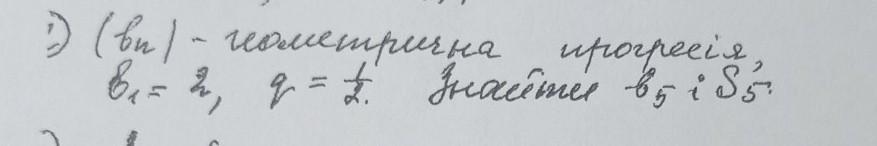 1) (bn) - геометрична прогресія,
b1 = 2, q = 1/2. Знайти b5 і S5.